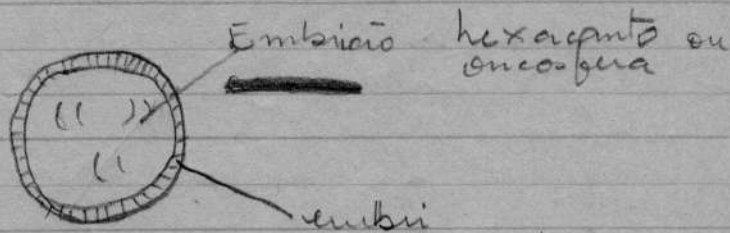 Embrião hexacanto ou
oncosfera
embri